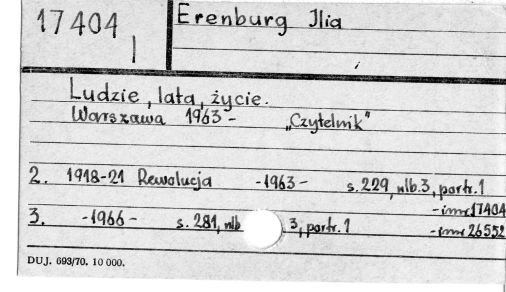 17404
I
Erenburg Ilia
Ludzie, lata, życie.
Warszawa 1963 - „Czytelnik"
2. 1918-21 Rewolucja - 1963 - s. 229, nlb. 3, portr. 1
- inw 17404
3. - 1966 - s. 281, nlb 3, portr. 1 - inw 26552
DUJ. 693/70. 10 000.